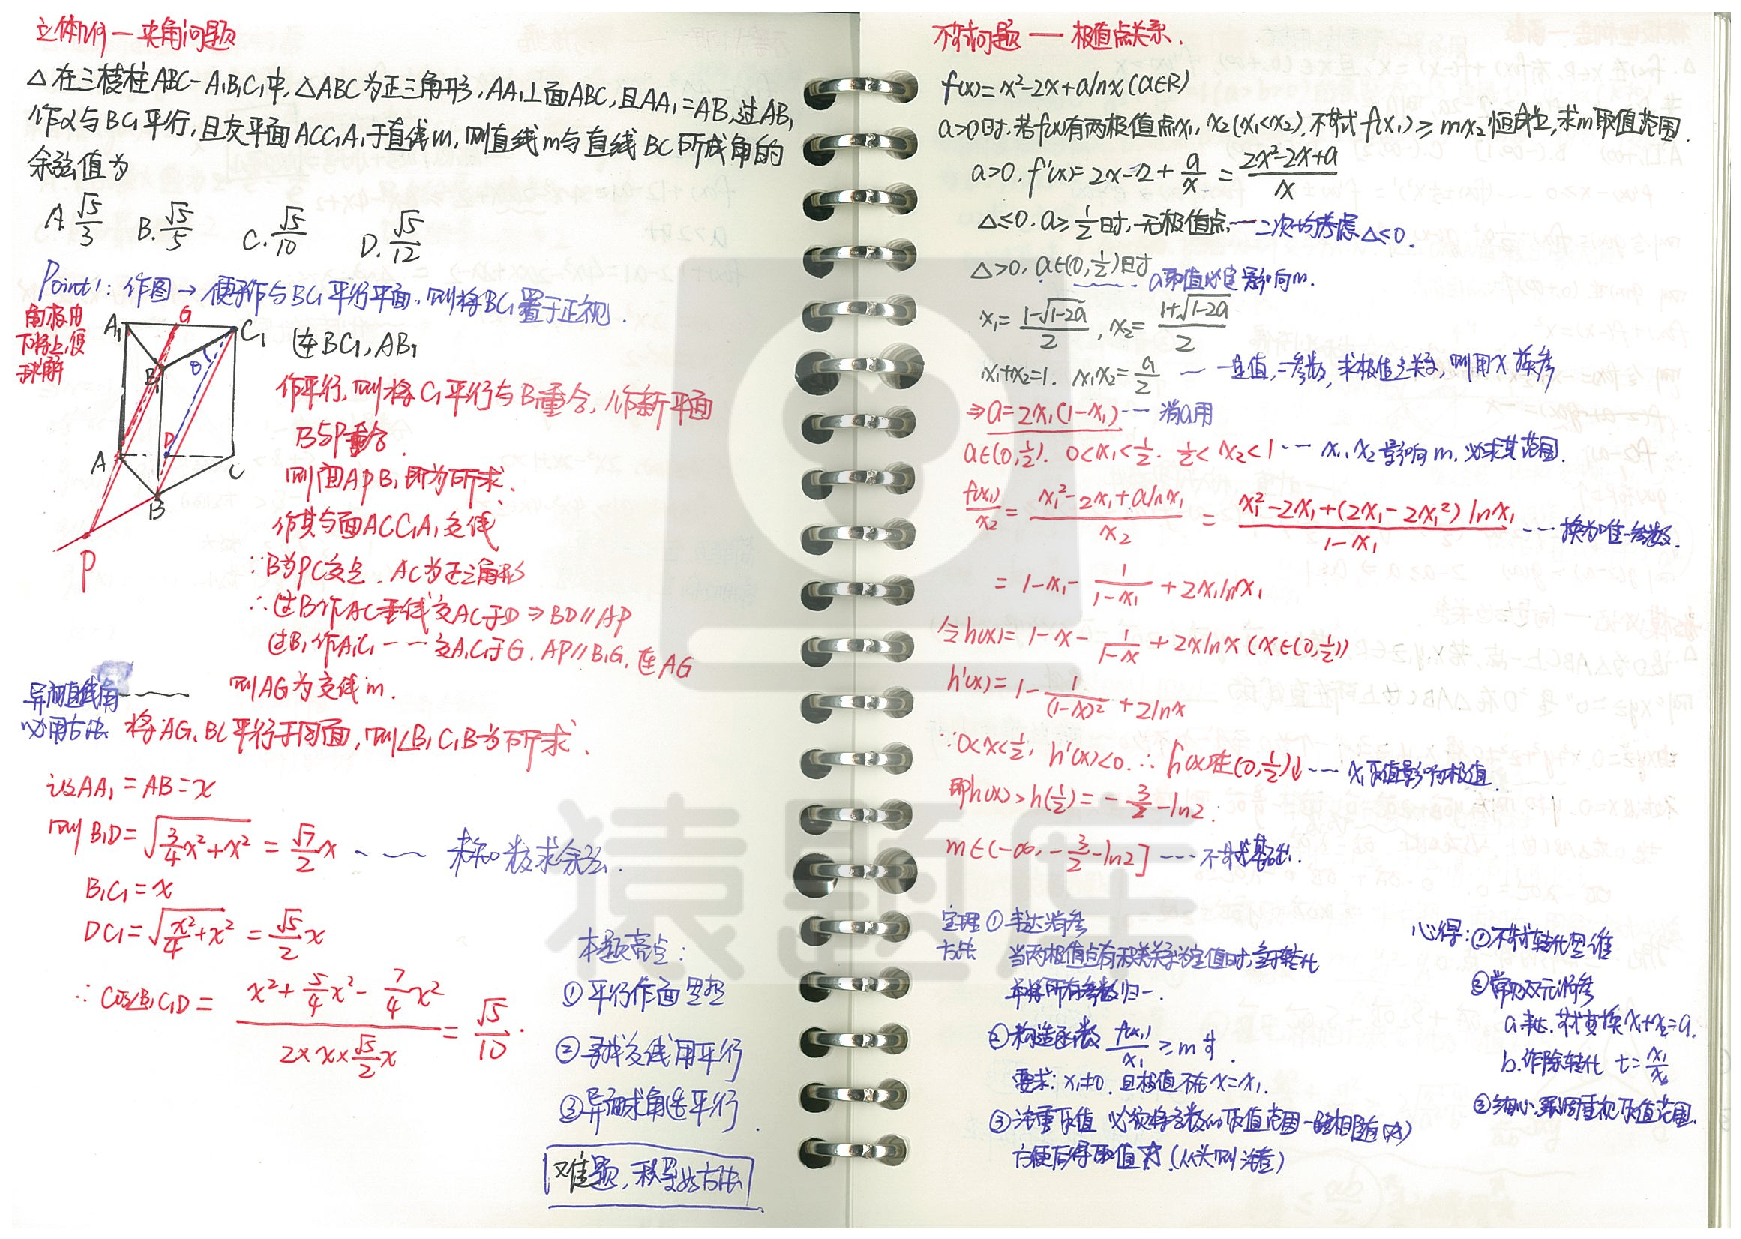 立体几何—夹角问题
△在三棱柱ABC-A₁B₁C₁中,△ABC为正三角形,AA₁⊥面ABC,且AA₁=AB,过AB₁
作α与BC₁平行,且交平面ACC₁A₁于直线m,则直线m与直线BC所成角的
余弦值为
A.√5/3 B.√5/5 C.√5/10 D.√5/12
Point1:作图→便于作与BC₁平行平面,则将BC₁置于正视.
A₁ G C₁
B₁
A D C
B
P
连BC₁,AB₁
作平行,则将C₁平行与B₁重合,作新平面
B与P重合.
则面APB₁即为所求.
作其与面ACC₁A₁交线
∵B为PC交点.AC为正三角形
∴过B作AC垂线交AC于D⇒BD//AP
过B₁作A₁C₁……交A₁C₁于G.AP//B₁G,连AG
则AG为交线m.
异面直线角
必用方法
将AG.BC平行于同面,则∠B₁C₁D为所求.
设AA₁=AB=x
则B₁D=√(3/4x²+x²)=√7/2x
B₁C₁=x
DC₁=√(x²/4+x²)=√5/2x
∴cos∠B₁C₁D=(x²+5/4x²-7/4x²)/(2×x×√5/2x)=√5/10.
本题亮点:
①平行作面思想
②寻找交线用平行
③异面求角造平行.
难题,积累此方法
不等问题—极值点关系.
f(x)=x²-2x+alnx(a∈R)
a>0时.若f(x)有两极值点x₁,x₂(x₁<x₂),不等式f(x₁)≥mx₂恒成立,求m取值范围.
a>0.f'(x)=2x-2+a/x=(2x²-2x+a)/x
△≤0.a≥1/2时,无极值点.……二次均考虑△≤0.
△>0,a∈(0,1/2)时 a取值必定影响m.
x₁=(1-√(1-2a))/2,x₂=(1+√(1-2a))/2
x₁+x₂=1.x₁x₂=a/2
⇒a=2x₁(1-x₁)……消a用
a∈(0,1/2).0<x₁<1/2.1/2<x₂<1……x₁,x₂影响m,必求其范围.
f(x₁)/x₂=(x₁²-2x₁+alnx₁)/x₂=(x₁²-2x₁+(2x₁-2x₁²)lnx₁)/(1-x₁)……换为唯一参数.
=1-x₁-1/(1-x₁)+2x₁lnx₁
令h(x)=1-x-1/(1-x)+2xlnx(x∈(0,1/2))
h'(x)=1-1/(1-x)²+2lnx
∵0<x<1/2,h'(x)<0.∴h(x)在(0,1/2)↓……x₁取值影响极值.
即h(x)>h(1/2)=-3/2-ln2.
m∈(-∞,-3/2-ln2]
①表达消参
方法
当两极值点有某关系为定值时,可转化
并将所有参数归一.
②构造函数f(x₁)/x₁≥m
要求:x₁≠0.且极值不在x=x₁.
方便后得取值(从头则注意)
心得:①不等式转化思维
②常见双元消参
b.作除转化 t=x₁/x₂